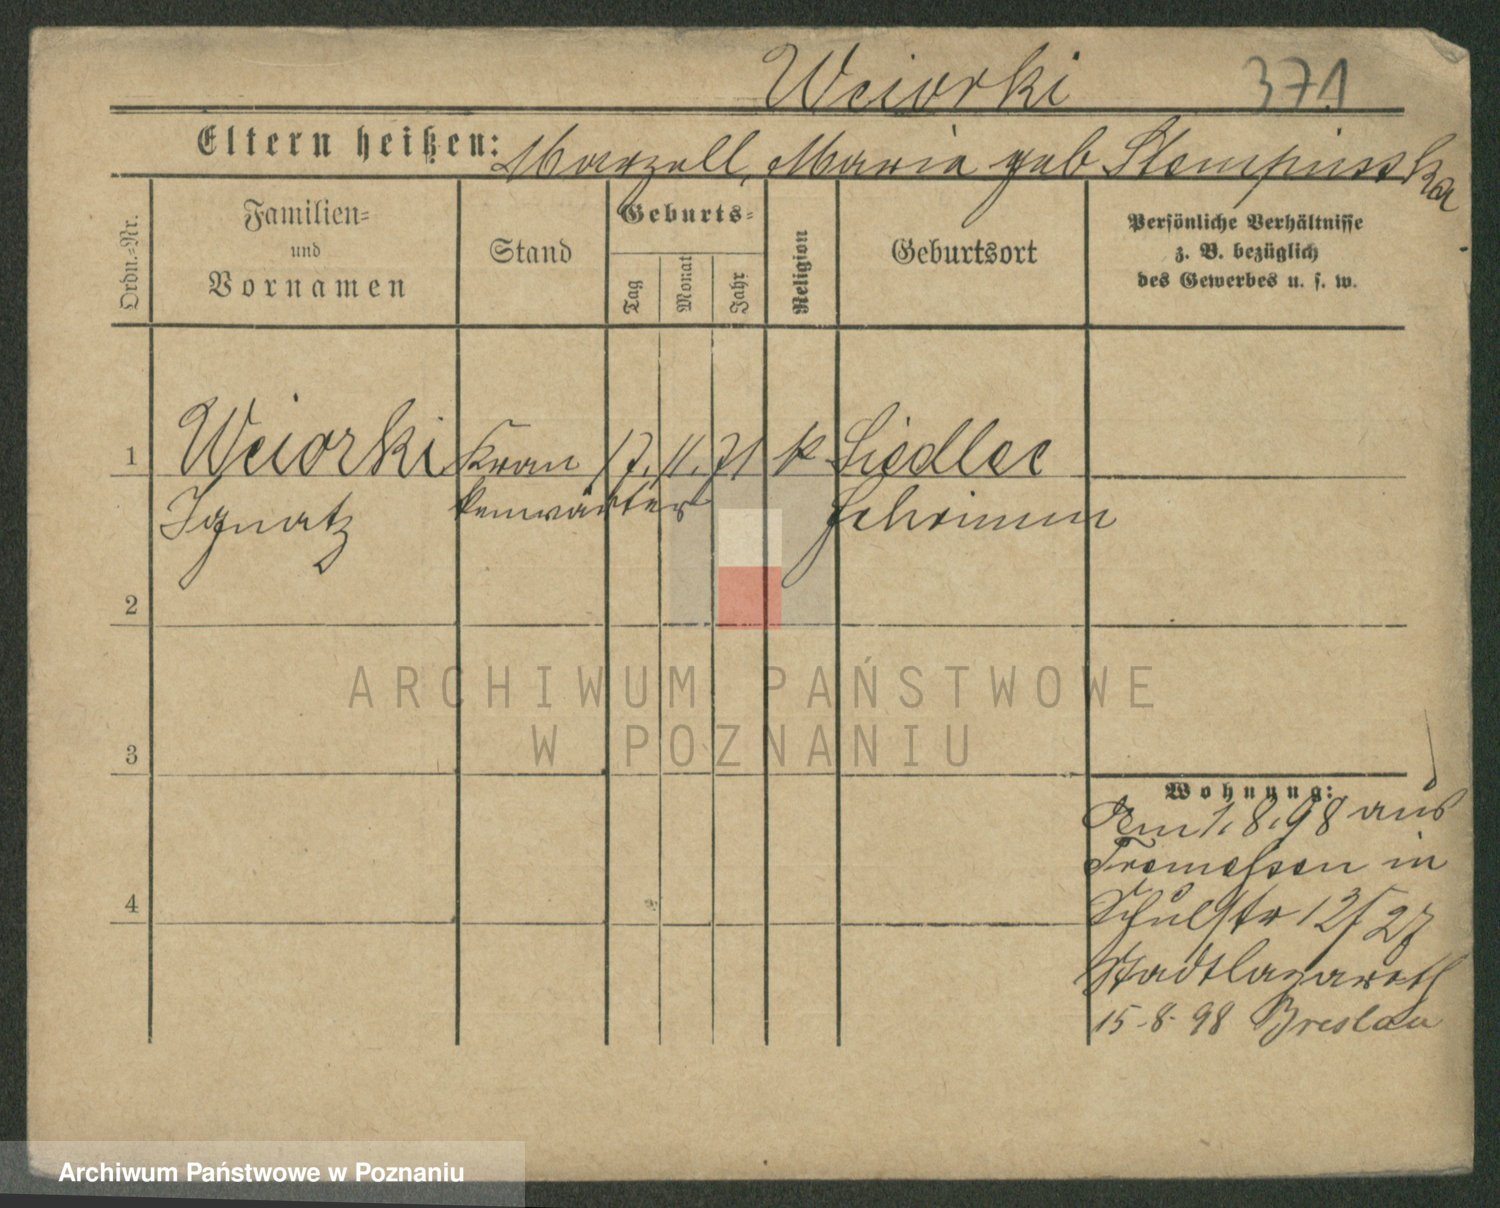 Wciorki 371
Eltern heißen: Marzell, Maria geb Stempinska
Ordn.-Nr.
Familien-
und
Vornamen
Stand
Geburts-
Tag
Monat
Jahr
Religion
Geburtsort
Persönliche Verhältnisse
z. B. bezüglich
des Gewerbes u. s. w.
1 Wciorki Kran 17. 11. 71 k Siedlec
Ignatz kenwärter Schrimm
2
3
4
Wohnung:
Am 1.8.98 aus
Tremessen in
Schulstr 12/27
Stadtlazareth
15-8-98 Breslau
ARCHIWUM PAŃSTWOWE
W POZNANIU
Archiwum Państwowe w Poznaniu